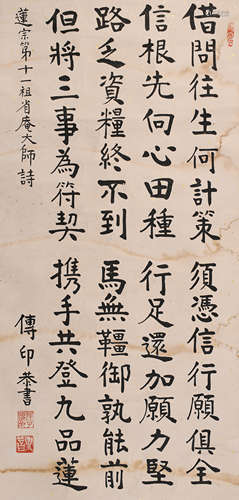 借問往生何計策　須憑信行願俱全
信根先向心田種　行足還加願力堅
路乏資糧終不到　馬無韁御孰能前
但將三事為符契　携手共登九品蓮
蓮宗第十一祖省庵大師詩
傳印恭書